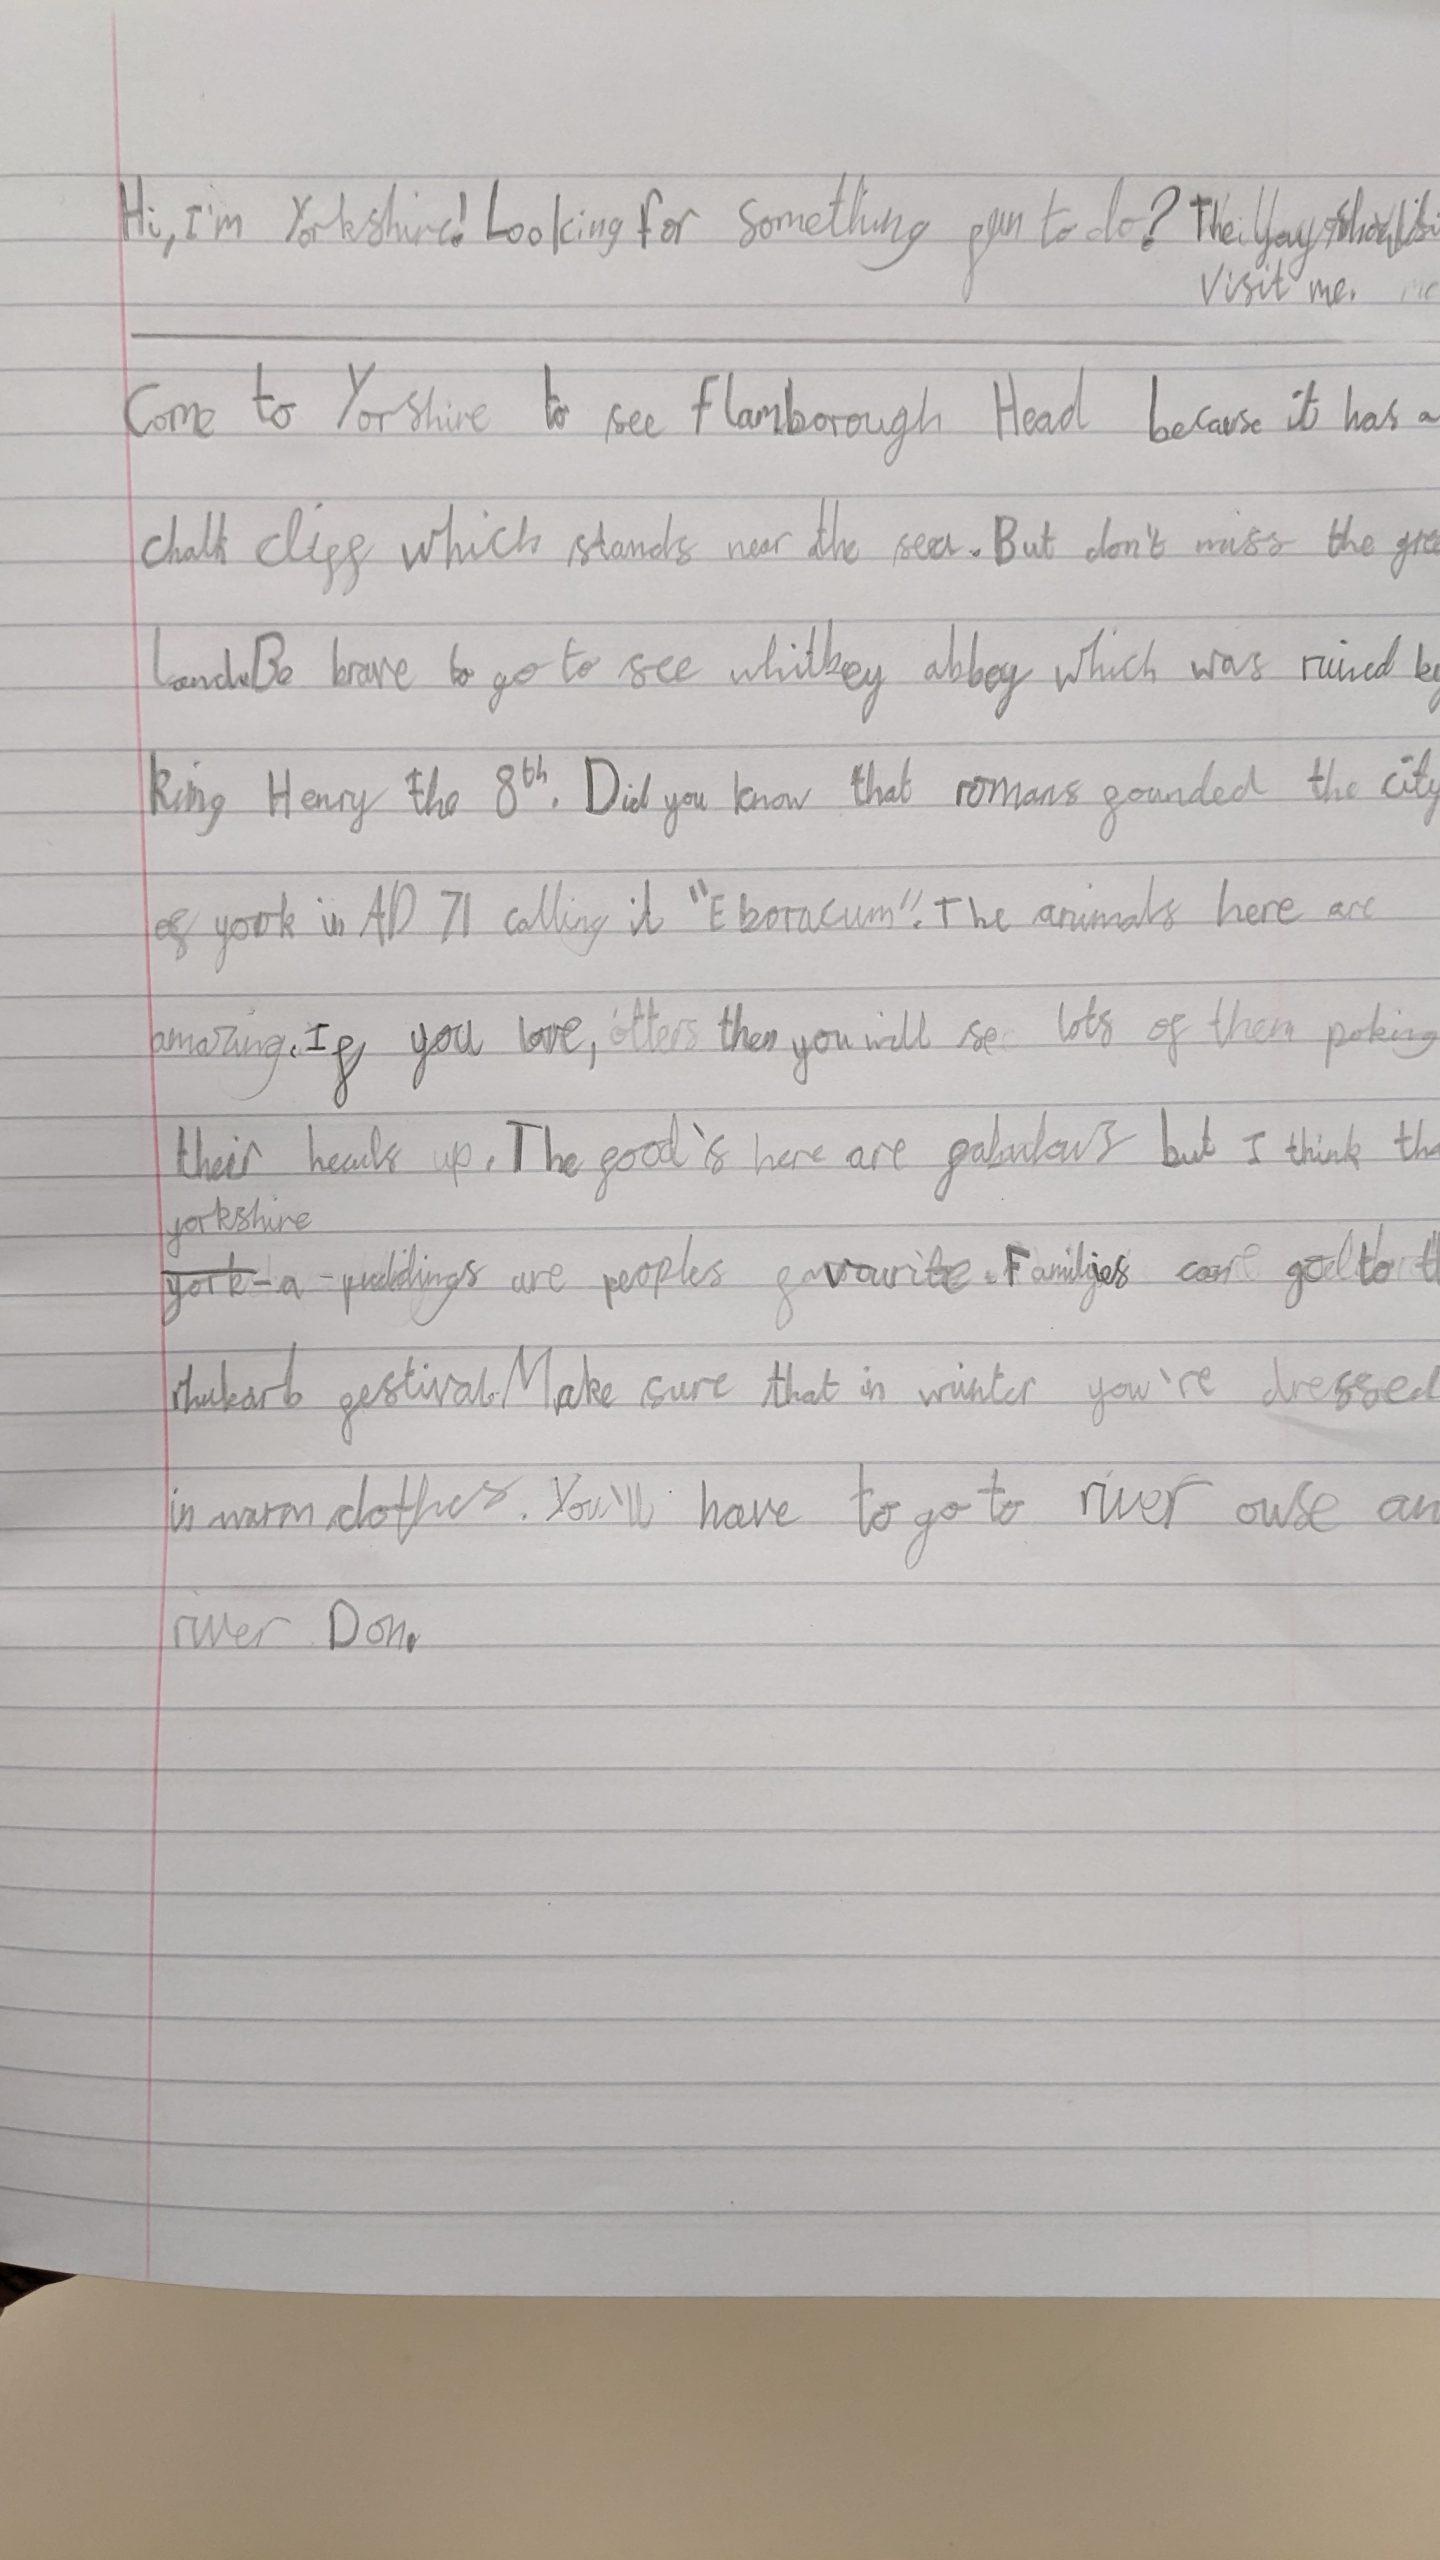 Hi, I'm Yorkshire! Looking for something fun to do? Then you should
visit me.
Come to Yorshire to see flamborough Head because it has a
chalk cliff which stands near the sea. But don't miss the
land. Be brave to go to see whitbey abbey which was ruined by
king Henry the 8th. Did you know that romans founded the city
of york in AD 71 calling it "Eboracum". The animals here are
amazing. If you love, otters then you will see lots of them poking
their heads up. The food's here are fabulous but I think
yorkshire
york-a-puddings are peoples favourite. Families can go to
rhubarb festival. Make sure that in winter you're dressed
in warm clothes. You'll have to go to river ouse
river Don.